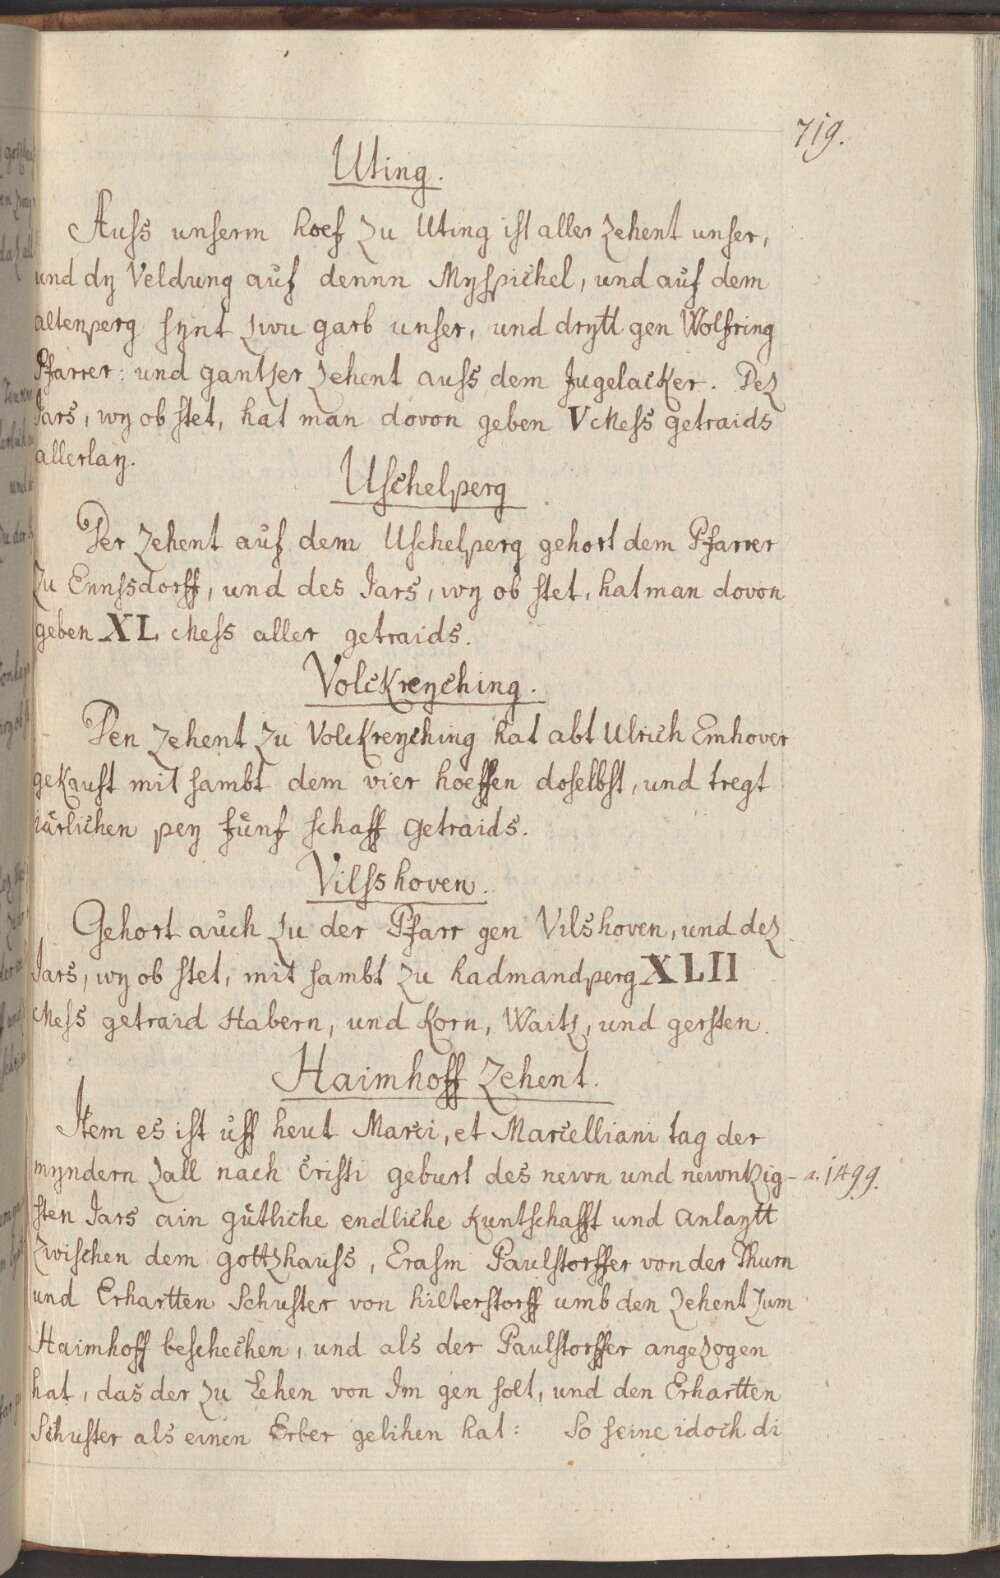 719.
Uting.
Auss unserm hoef zu Uting ist aller zehent unser,
und dy Veldung auf dennn Myspichel, und auf dem
altenperg synt zwu garb unser, und drytt gen Wolfring
Pfarrer: und gantzer zehent auss dem Jugelacker. Dez
Jars, wy ob stet, hat man dovon geben V Mess getraids
allerlay.
Uschelperg
Der zehent auf dem Uschelperg gehort dem Pfarrer
zu Ennssdorff, und des Jars, wy ob stet, hat man dovon
geben XL Mess aller getraids.
Volckreyching.
Den zehent zu Volckreyching hat abt Ulrich Emhover
gekauft mit sambt dem vier hoeffen doselbst, und tregt
järlichen pey fünf schaff getraids.
Vilsshoven.
Gehort auch zu der Pfarr gen Vilshoven, und dez
Jars, wy ob stet, mit sambt zu hadmandperg XLII
Mess getraid Habern, und Korn, Waitz, und gersten.
Haimhoff Zehent.
Item es ist uff heut Marci, et Marcelliani tag der
myndern zall nach Cristi geburt des newn und newntzig- a. 1499.
sten Jars ain gütliche endliche Kuntschafft und Anlaytt
zwischen dem gottzhauss, Erasm Paulstorffer von der Thurn
und Erhartten Schuster von hilterstorff umb den zehent zum
Haimhoff beschechen, und als der Paulstorffer angezogen
hat, das der zu Lehen von Im gen solt, und den Erhartten
Schuster als einen Erber gelihen hat: So seine idoch di